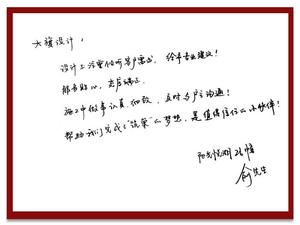 大旗设计：
设计上注重倾听客户需求，给予专业建议！
服务贴心，售后
施工中做事认真、细致，及时与户主沟通！
帮助我们完成了“筑巢”的梦想，是值得信任的小伙伴！
阳光悦湖
俞先生